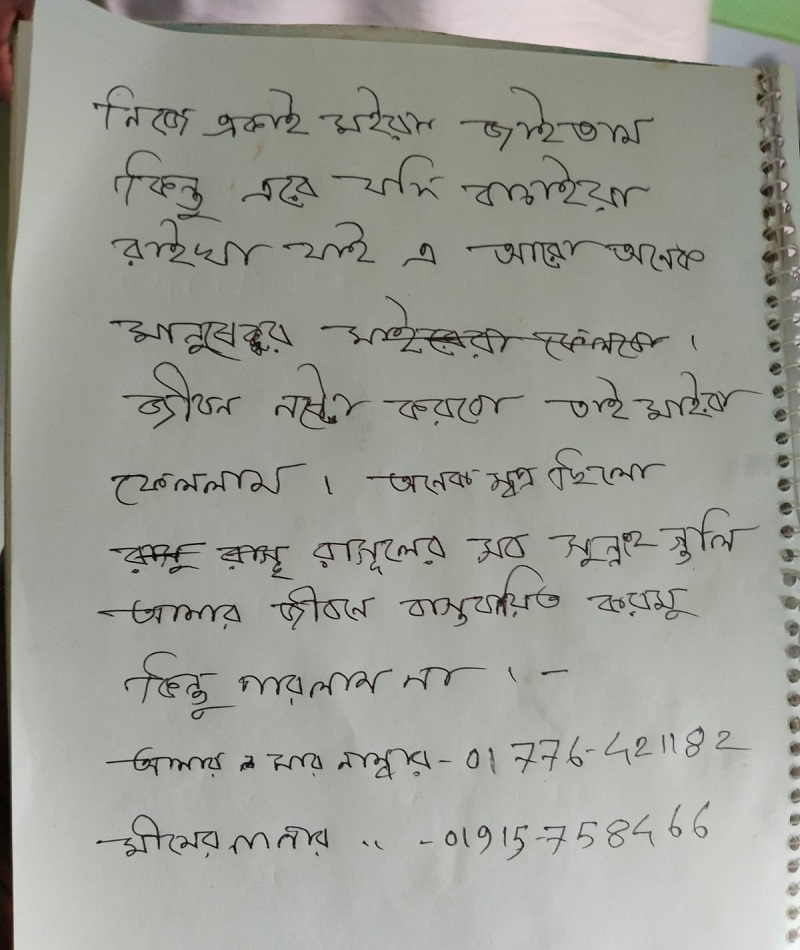 নিজে একাই মইরা জাইতাম
কিন্তু এরে যদি বাচাইয়া
রাইখা যাই এ আরো অনেক
মানুষের মাইরা ফেলবো ।
জীবন নষ্টো করবো তাই মাইরা
ফেললাম । অনেক স্বপ্ন ছিলো
রাসু রাসূ রাসূলের সব সুন্নাহ গুলি
আমার জীবনে বাস্তবায়িত করমু
কিন্তু পারলাম না । -
আমার মার নাম্বার - 01776-421182
মীমের নানার .. - 01915-758466